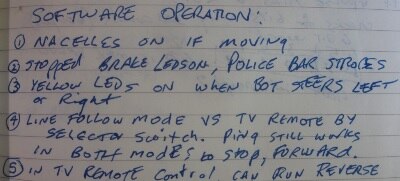 SOFTWARE OPERATION:
① NACELLES ON IF MOVING
② STOPPED BRAKE LEDS ON, POLICE BAR STROBES
③ YELLOW LEDS ON WHEN BOT STEERS LEFT
or Right
④ LINE FOLLOW MODE VS TV REMOTE BY
SELECTOR SWITCH. Ping STILL WORKS
IN BOTH MODES to STOP, FORWARD.
⑤ IN TV REMOTE CONTROL CAN RUN REVERSE